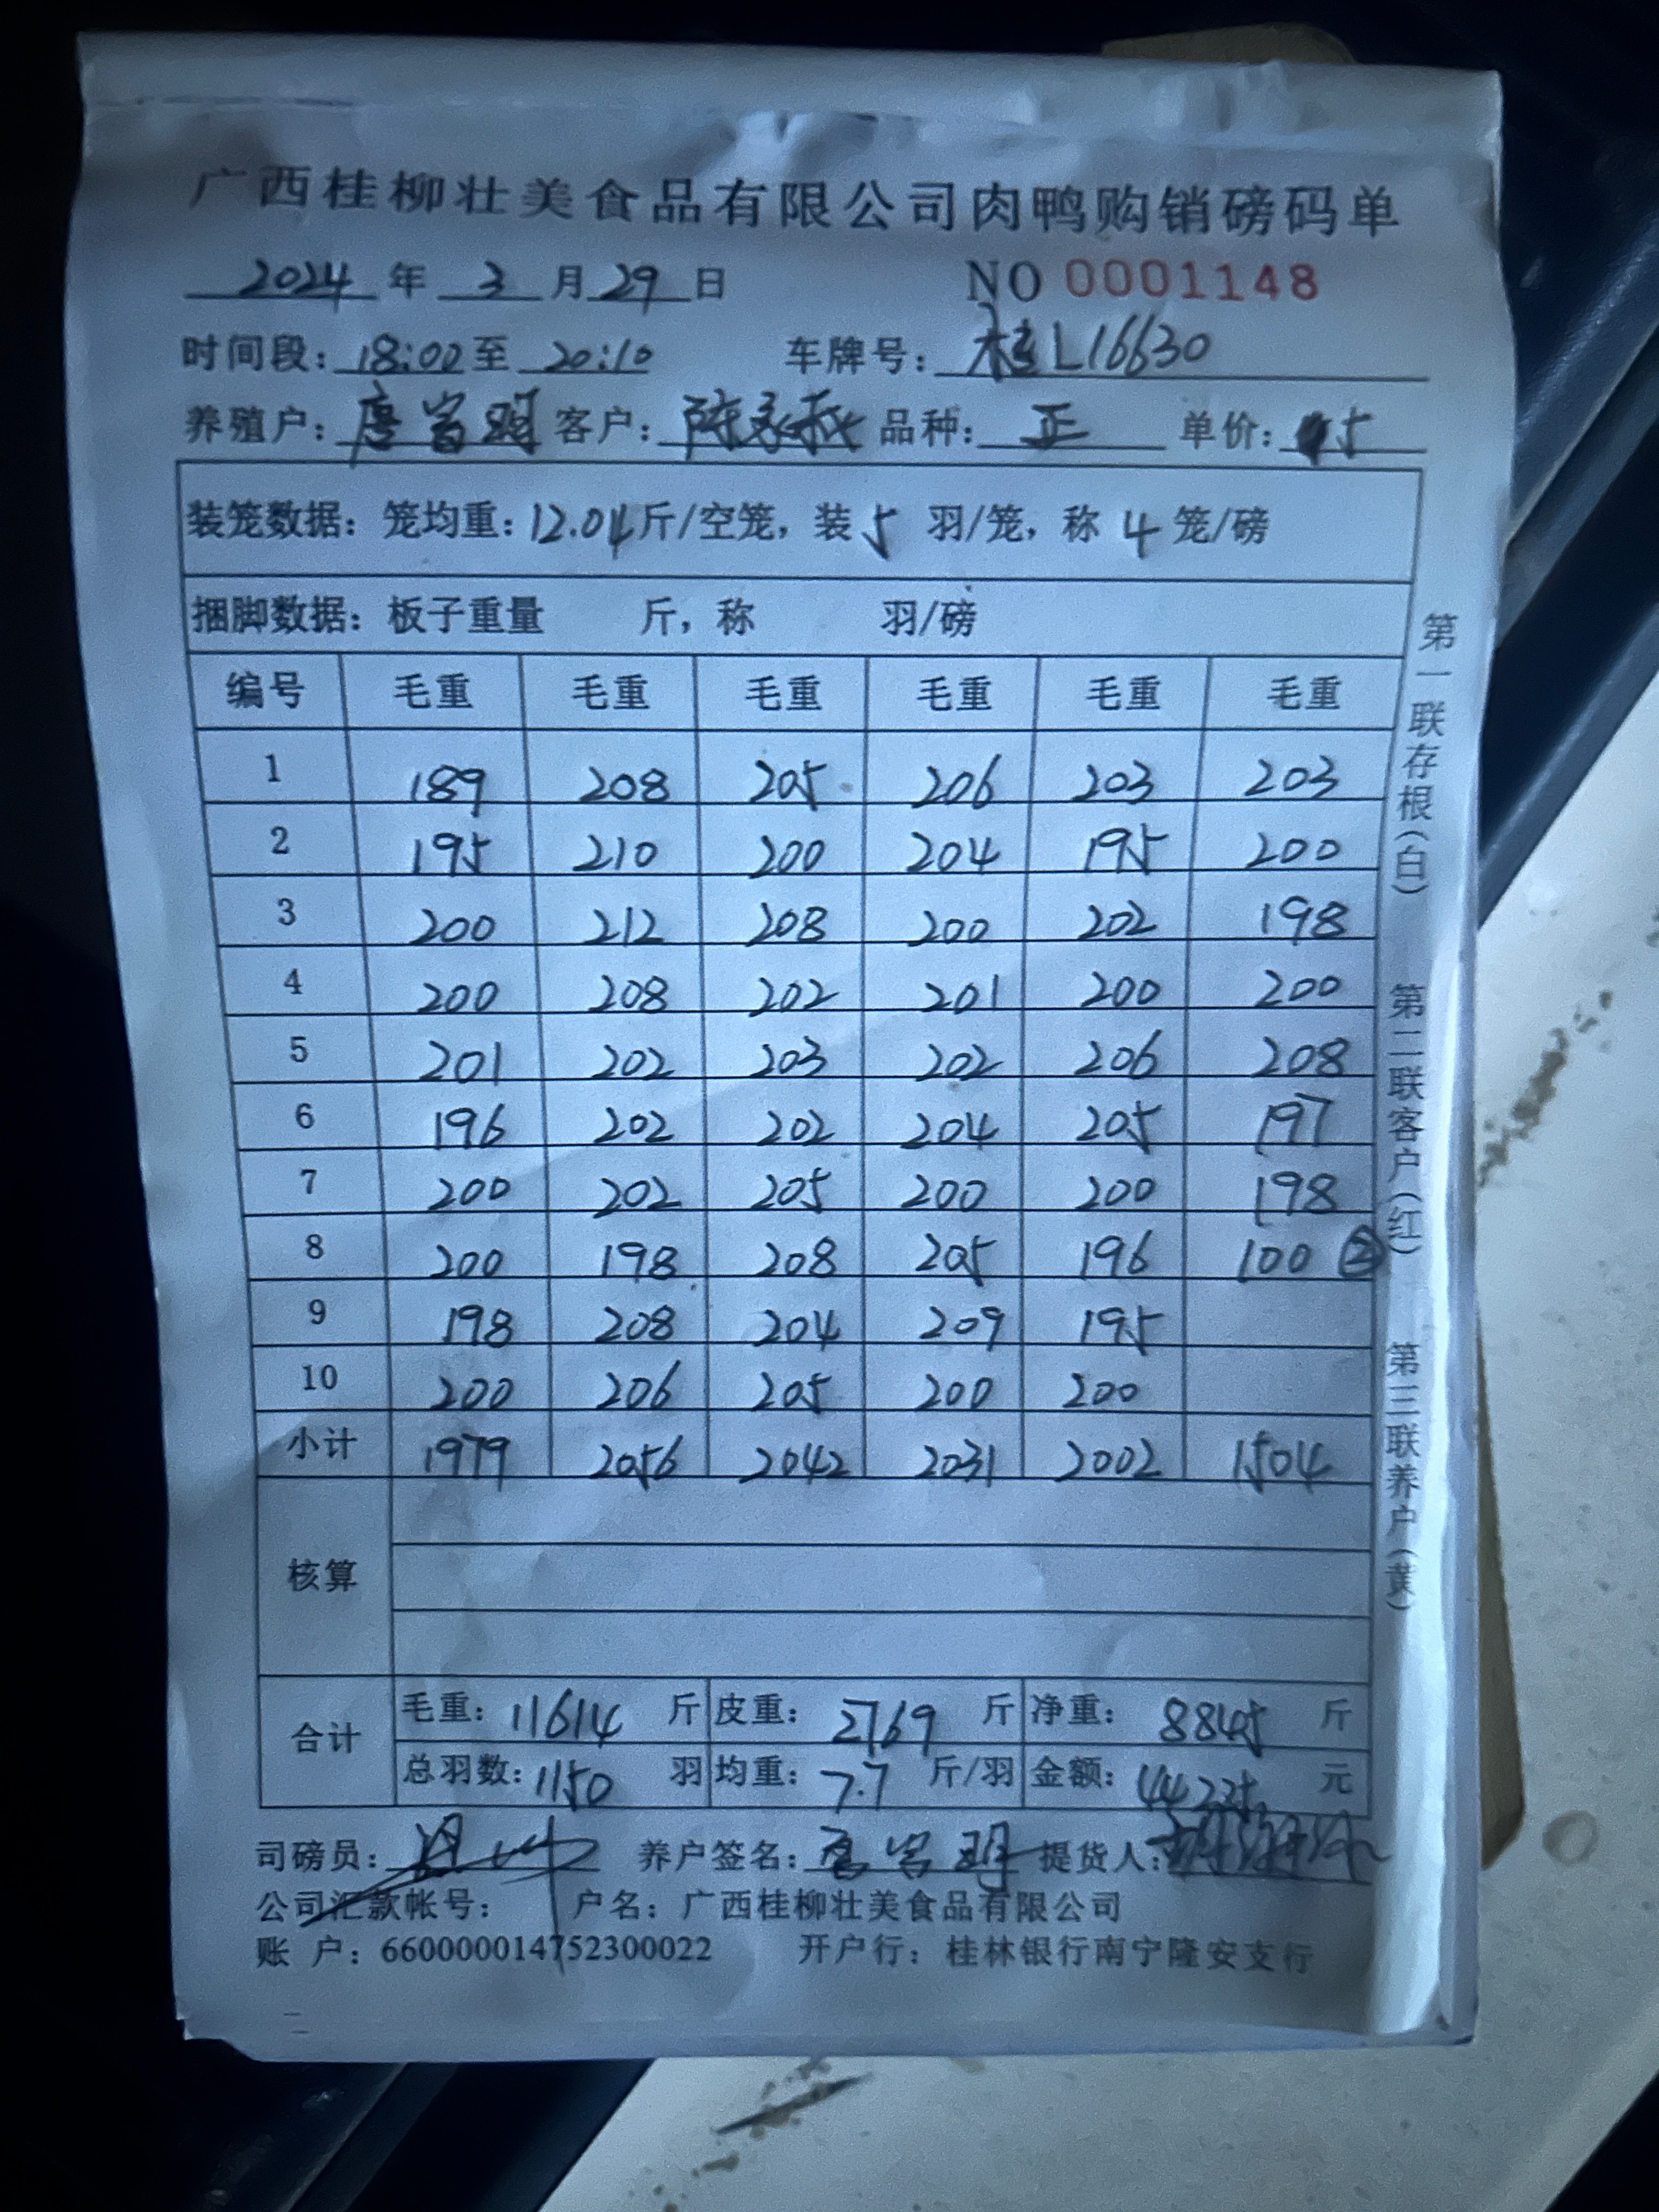 广西桂柳壮美食品有限公司肉鸭购销磅码单
2024 年 3 月 29 日 NO 0001148
时间段: 18:00 至 20:10 车牌号: 桂L16630
养殖户: 唐富明 客户: 陈 品种: 正 单价:
装笼数据: 笼均重: 12.04 斤/空笼, 装 5 羽/笼, 称 4 笼/磅
捆脚数据: 板子重量 斤, 称 羽/磅
编号 毛重 毛重 毛重 毛重 毛重 毛重
1 189 208 205 206 203 203
2 195 210 200 204 195 200
3 200 212 208 200 202 198
4 200 208 202 201 200 200
5 201 202 203 202 206 208
6 196 202 202 204 205 197
7 200 202 205 200 200 198
8 200 198 208 205 196 100 ②
9 198 208 204 209 195
10 200 206 205 200 200
小计 1979 2056 2042 2031 2002 1504
核算
合计 毛重: 11614 斤 皮重: 2769 斤 净重: 8845 斤
总羽数: 1150 羽 均重: 7.7 斤/羽 金额: 44225 元
司磅员: 养户签名: 唐富明 提货人:
公司汇款帐号: 户名: 广西桂柳壮美食品有限公司
账 户: 660000014752300022 开户行: 桂林银行南宁隆安支行
第一联存根(白) 第二联客户(红) 第三联养户(黄)